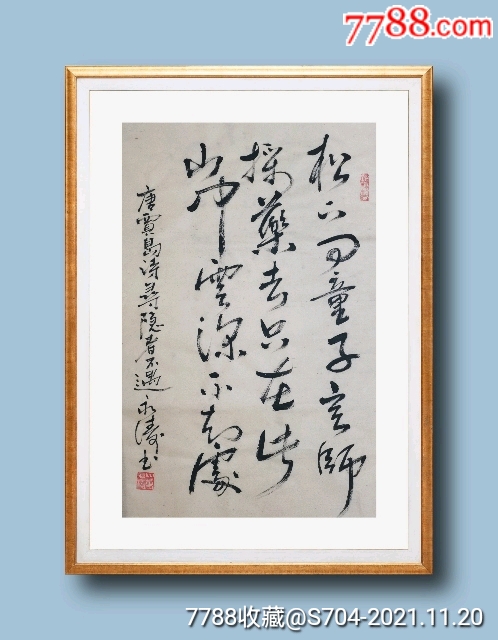 7788.com
松下问童子言師
採藥去只在此
山中雲深不知處
唐賈島诗尋隐者不遇 永濤书
7788收藏@S704-2021.11.20